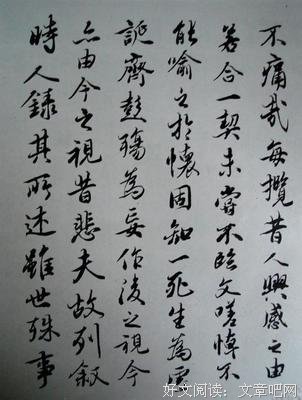 不痛哉每攬昔人興感之由
若合一契未嘗不臨文嗟悼不
能喻之於懷固知一死生為虛
誕齊彭殤為妄作後之視今
亦由今之視昔悲夫故列敘
時人錄其所述雖世殊事
好文阅读：文章吧网